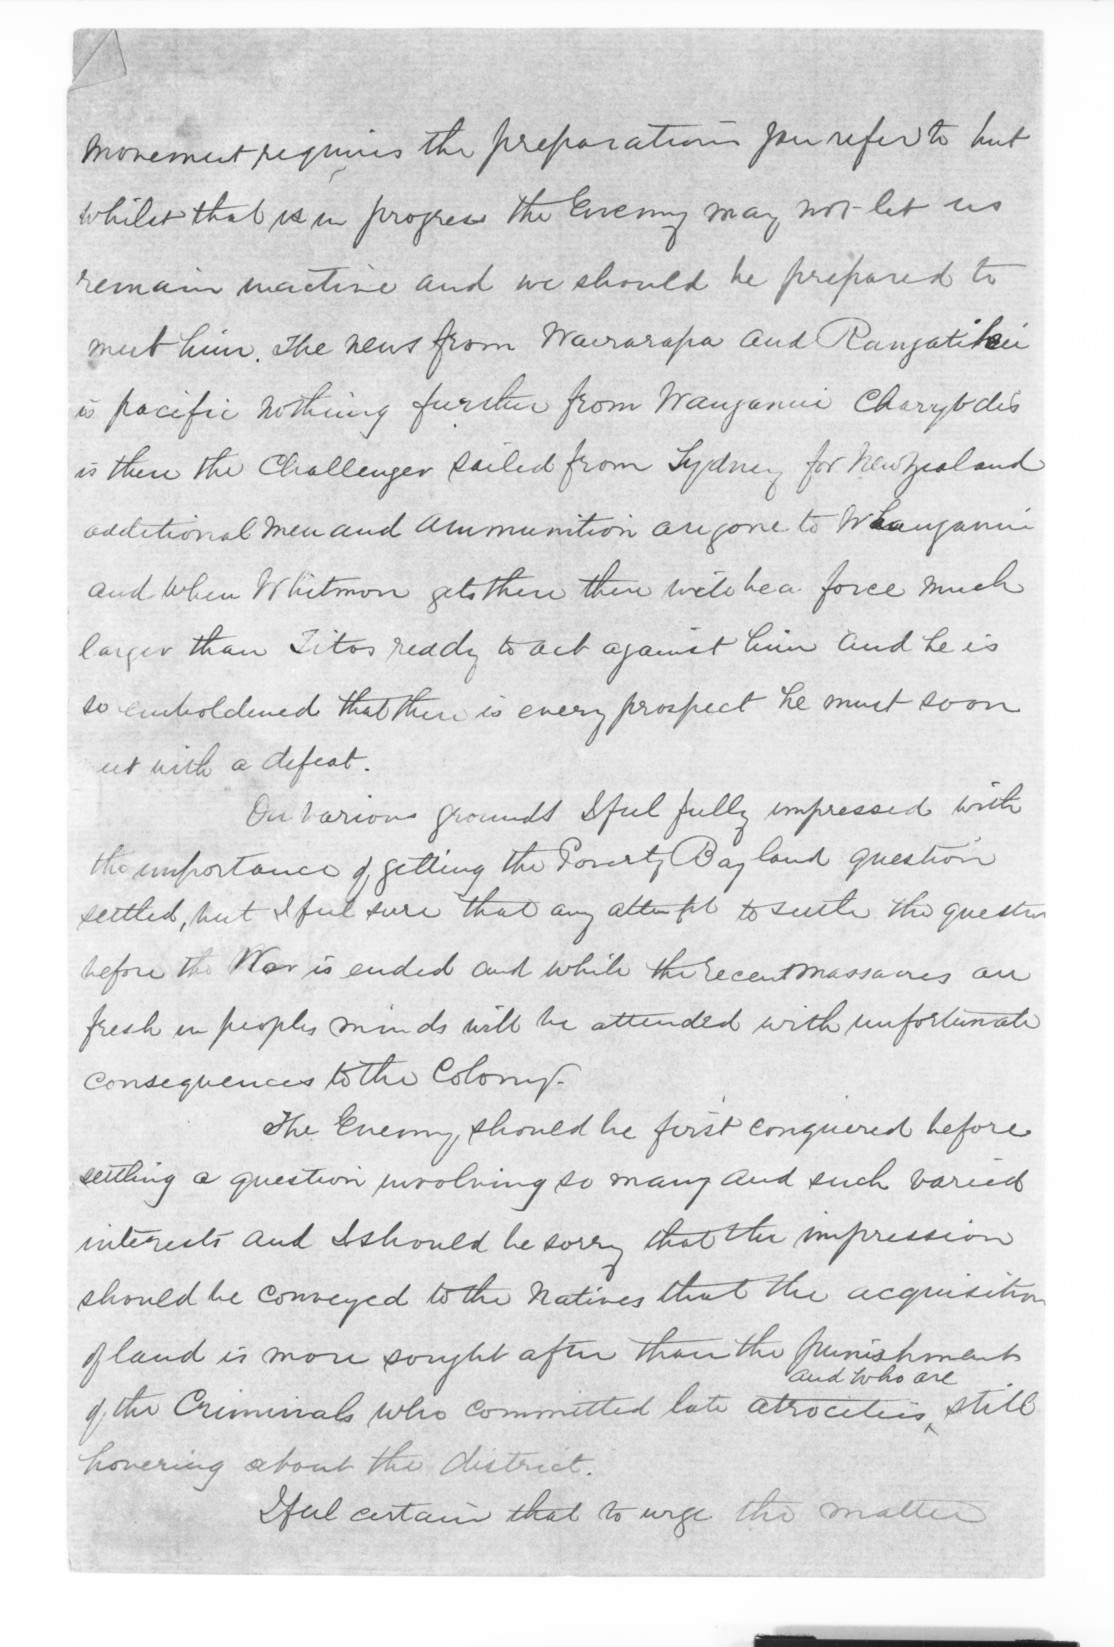 movement requires the preparations you refer to but
whilst that is in progress the Enemy may not let us
remain inactive and we should be prepared to
meet him. The news from Wairarapa and Rangatikei
is pacific nothing further from Wanganui Charybdis
is there the Challenger sailed from Sydney for New Zealand
additional men and ammunition are gone to Whanganui
and when Whitmore gets there there will be a force much
larger than Titos ready to act against him and he is
so emboldened that there is every prospect he must soon
eet with a defeat.
On various grounds I feel fully impressed with
the importance of getting the Poverty Bay land question
settled, but I feel sure that any attempt to settle the question
before the War is ended and while the recent massacres are
fresh in peoples minds will be attended with unfortunate
consequences to the Colony.
The Enemy should be first conquered before
settling a question involving so many and such varied
interests and I should be sorry that the impression
should be conveyed to the Natives that the acquisition
of land is more sought after than the punishment
and who are
of the Criminals who committed late atrocities, still
hovering about the district.
I feel certain that to urge the matter